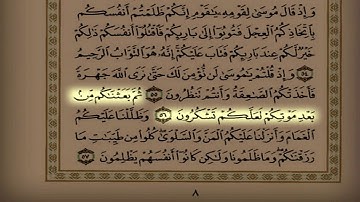 وَإِذْ قَالَ مُوسَىٰ لِقَوْمِهِ يَٰقَوْمِ إِنَّكُمْ ظَلَمْتُمْ أَنفُسَكُم
بِٱتِّخَاذِكُمُ ٱلْعِجْلَ فَتُوبُوٓا۟ إِلَىٰ بَارِئِكُمْ فَٱقْتُلُوٓا۟ أَنفُسَكُمْ ذَٰلِكُمْ
خَيْرٌ لَّكُمْ عِندَ بَارِئِكُمْ فَتَابَ عَلَيْكُمْ إِنَّهُۥ هُوَ ٱلتَّوَّابُ ٱلرَّحِيمُ
٥٤ وَإِذْ قُلْتُمْ يَٰمُوسَىٰ لَن نُّؤْمِنَ لَكَ حَتَّىٰ نَرَى ٱللَّهَ جَهْرَةً
فَأَخَذَتْكُمُ ٱلصَّٰعِقَةُ وَأَنتُمْ تَنظُرُونَ ٥٥ ثُمَّ بَعَثْنَٰكُم مِّنۢ
بَعْدِ مَوْتِكُمْ لَعَلَّكُمْ تَشْكُرُونَ ٥٦ وَظَلَّلْنَا عَلَيْكُمُ
ٱلْغَمَامَ وَأَنزَلْنَا عَلَيْكُمُ ٱلْمَنَّ وَٱلسَّلْوَىٰ كُلُوا۟ مِن طَيِّبَٰتِ مَا
رَزَقْنَٰكُمْ وَمَا ظَلَمُونَا وَلَٰكِن كَانُوٓا۟ أَنفُسَهُمْ يَظْلِمُونَ ٥٧
٨